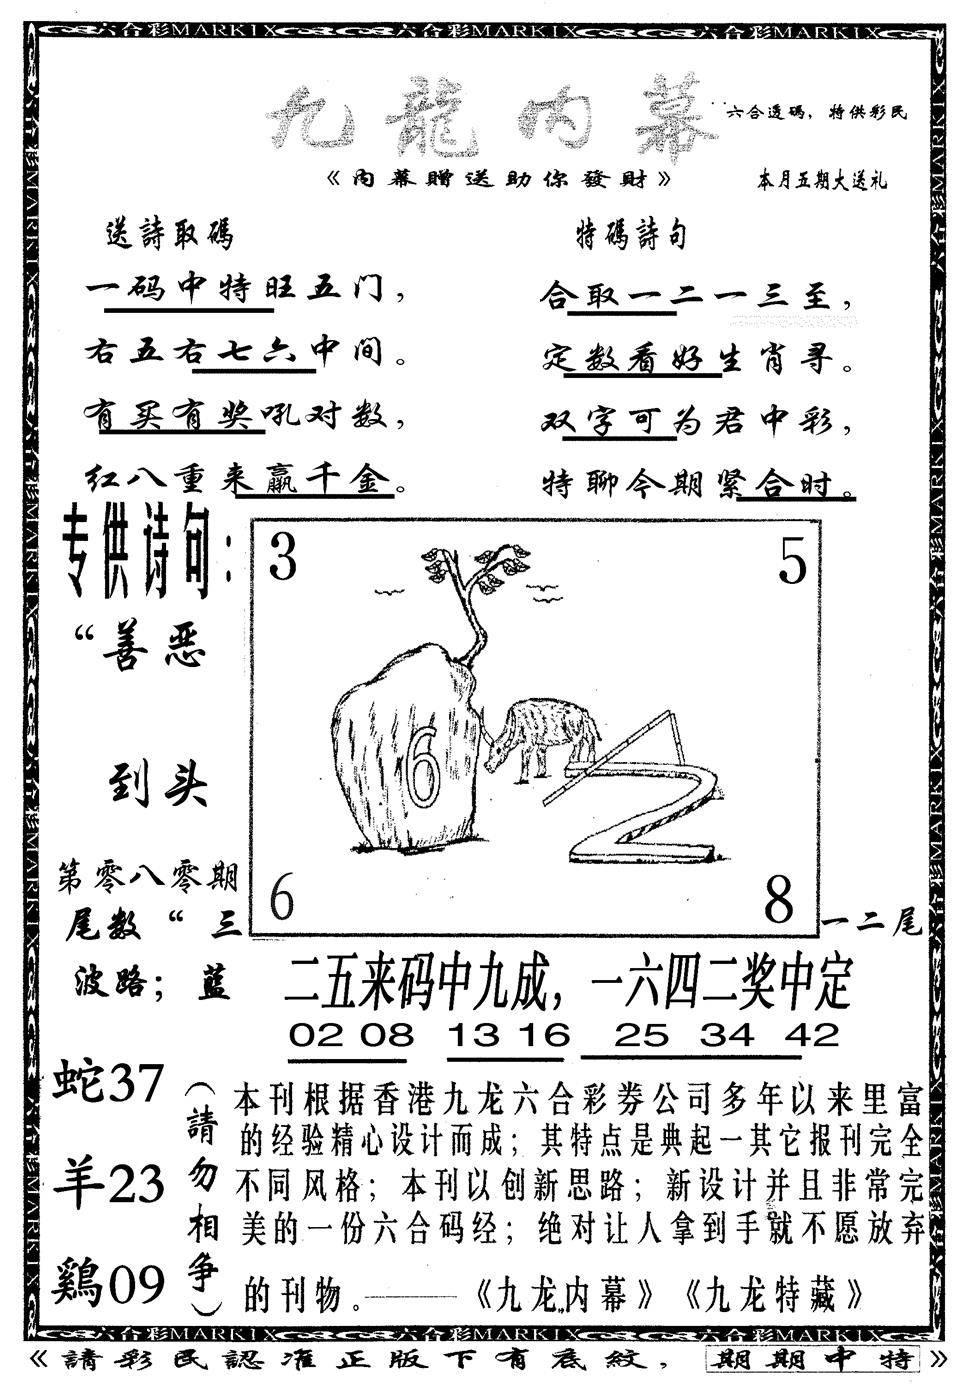 六合彩MARKIX 六合彩MARKIX 六合彩MARKIX
九龍内幕
六合透码，特供彩民
《内幕贈送助你發財》
本月五期大送礼
送詩取碼
一码中特旺五门，
右五右七六中间。
有买有奖吼对数，
红八重来赢千金。
特碼詩句
合取一二一三至，
定数看好生肖寻。
双字可为君中彩，
特聊今期紧合时。
专供诗句：
“善恶
到头
第零八零期
尾数“三
波路；蓝
3
5
6
2
6
8
一二尾
二五来码中九成，一六四二奖中定
02 08 13 16 25 34 42
蛇37
羊23
鷄09
（請勿相争）
本刊根据香港九龙六合彩券公司多年以来里富
的经验精心设计而成；其特点是典起一其它报刊完全
不同风格；本刊以创新思路；新设计并且非常完
美的一份六合码经；绝对让人拿到手就不愿放弃
的刊物。——《九龙内幕》《九龙特藏》
六合彩MARKIX 六合彩MARKIX 六合彩MARKIX
《請彩民認准正版下有底紋，期期中特》